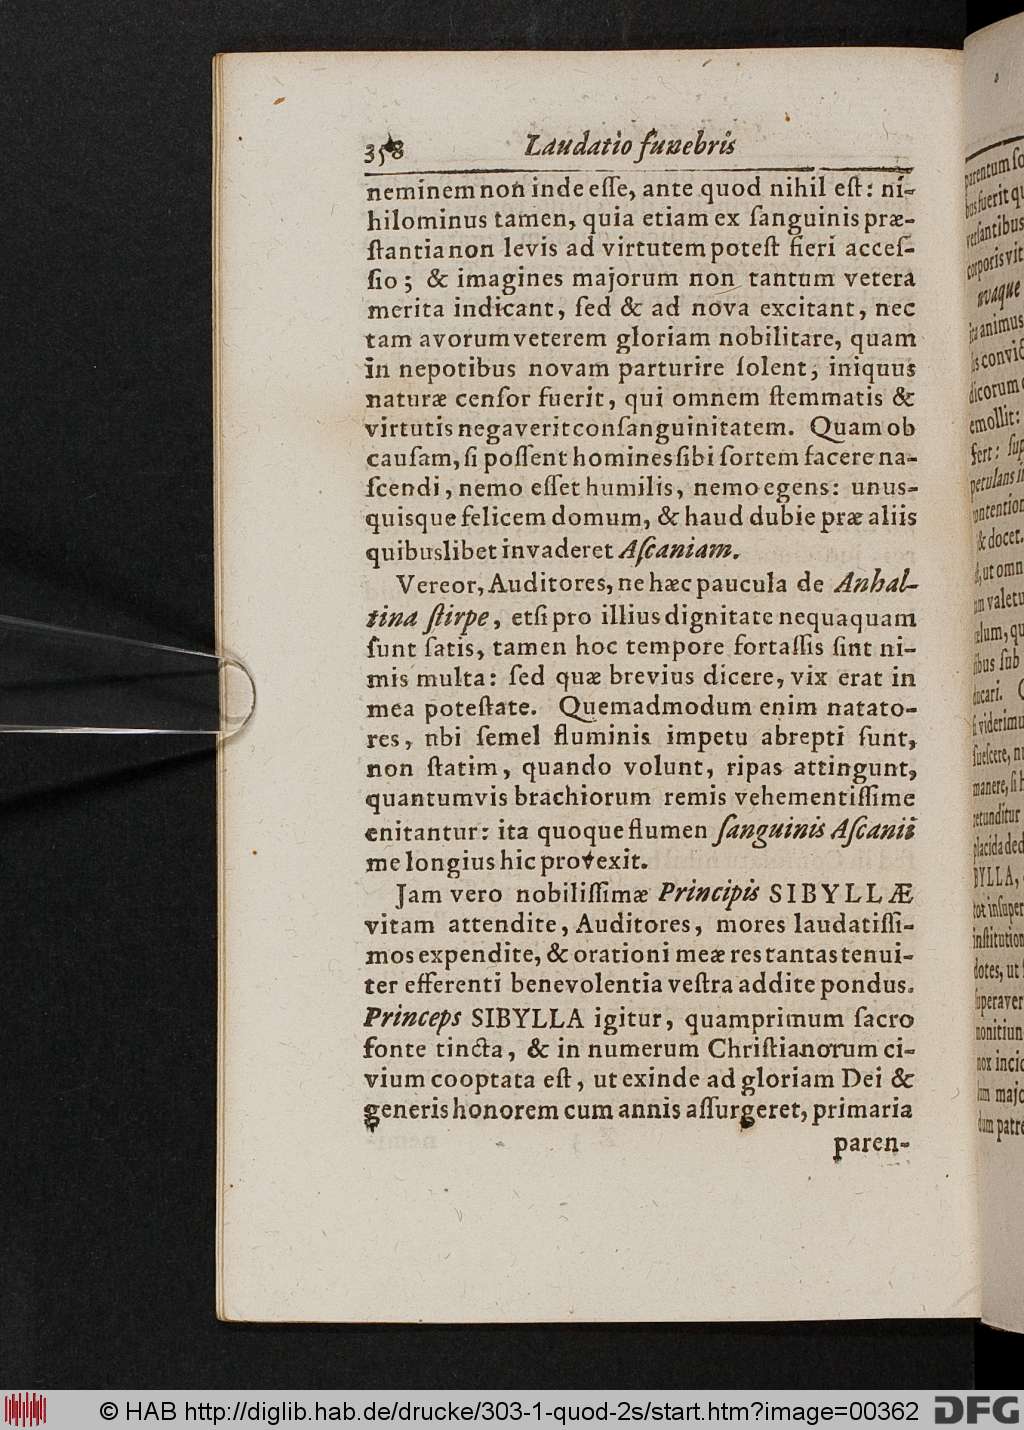 358 Laudatio funebris
neminem non inde esse, ante quod nihil est: ni-
hilominus tamen, quia etiam ex sanguinis præ-
stantia non levis ad virtutem potest fieri acces-
sio; & imagines majorum non tantum vetera
merita indicant, sed & ad nova excitant, nec
tam avorum veterem gloriam nobilitare, quam
in nepotibus novam parturire solent, iniquus
naturæ censor fuerit, qui omnem stemmatis &
virtutis negaverit consanguinitatem. Quam ob
causam, si possent homines sibi sortem facere na-
scendi, nemo esset humilis, nemo egens: unus-
quisque felicem domum, & haud dubie præ aliis
quibuslibet invaderet Ascaniam.
Vereor, Auditores, ne hæc paucula de Anhal-
tina stirpe, etsi pro illius dignitate nequaquam
sunt satis, tamen hoc tempore fortassis sint ni-
mis multa: sed quæ brevius dicere, vix erat in
mea potestate. Quemadmodum enim natato-
res, ubi semel fluminis impetu abrepti sunt,
non statim, quando volunt, ripas attingunt,
quantumvis brachiorum remis vehementissime
enitantur: ita quoque flumen sanguinis Ascanii
me longius hic provexit.
Jam vero nobilissimæ Principis SIBYLLÆ
vitam attendite, Auditores, mores laudatissi-
mos expendite, & orationi meæ res tantas tenui-
ter efferenti benevolentia vestra addite pondus.
Princeps SIBYLLA igitur, quamprimum sacro
fonte tincta, & in numerum Christianorum ci-
vium cooptata est, ut exinde ad gloriam Dei &
generis honorem cum annis assurgeret, primaria
paren-
parentum so
bus fuerit qu
versantibus
corporis vit
nuaque
ita animus
is convic
dicorum
emollit:
fert: sup
petulans i
contention
& docet.
ut omn
um valetu
qu
ibus sub
ducari.
si viderimu
suescere, n
manere, si h
retunditur
placida ded
BYLLA,
tot insuper
institution
dotes, ut
superaver
monitiun
nox incid
lum majo
dum patre
© HAB http://diglib.hab.de/drucke/303-1-quod-2s/start.htm?image=00362 DFG